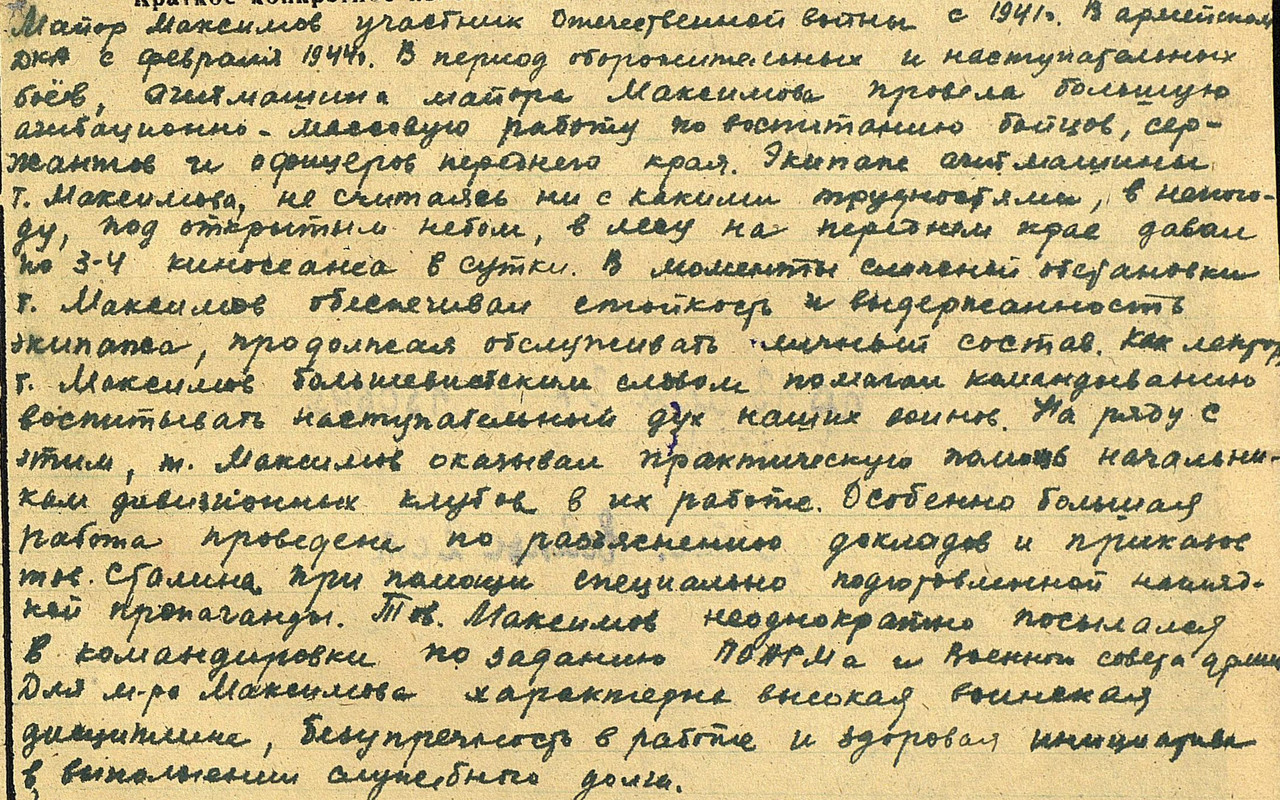 Краткое конкретное
Майор Максимов участник Отечественной войны с 1941г. В армейском
ДКА с февраля 1944г. В период оборонительных и наступательных
боёв, агитмашина майора Максимова провела большую
агитационно-массовую работу по воспитанию бойцов, сер-
жантов и офицеров переднего края. Экипаж агитмашины
т. Максимова, не считаясь ни с какими трудностями, в непого-
ду, под открытым небом, в лесу на переднем крае давал
по 3-4 киносеанса в сутки. В моменты сложной обстановки
т. Максимов обеспечивал стойкость и выдержанность
экипажа, продолжая обслуживать личный состав. Как лектор
т. Максимов большевистским словом помогал командованию
воспитывать наступательный дух наших воинов. На ряду с
этим, т. Максимов оказывал практическую помощь начальни-
кам дивизионных клубов в их работе. Особенно большая
работа проведена по разъяснению докладов и приказов
тов. Сталина при помощи специально подготовленной нагляд-
ной пропаганды. Тов. Максимов неоднократно посылался
в командировки по заданию ПОАРМа и Военного совета армии
Для м-ра Максимова характерна высокая воинская
дисциплина, безупречность в работе и здоровая инициатива
в выполнении служебного долга.